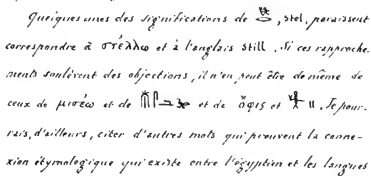 Quelques unes des significations de , stel, paraissent
correspondre à στέλλω et à l'anglais still. Si ces rapproche-
ments soulèvent des objections, il n'en peut être de même de
ceux de μισέω et de et de ὄφις et Je pour-
rais, d'ailleurs, citer d'autres mots qui prouvent la conne-
xion étymologique qui existe entre l'égyptien et les langues